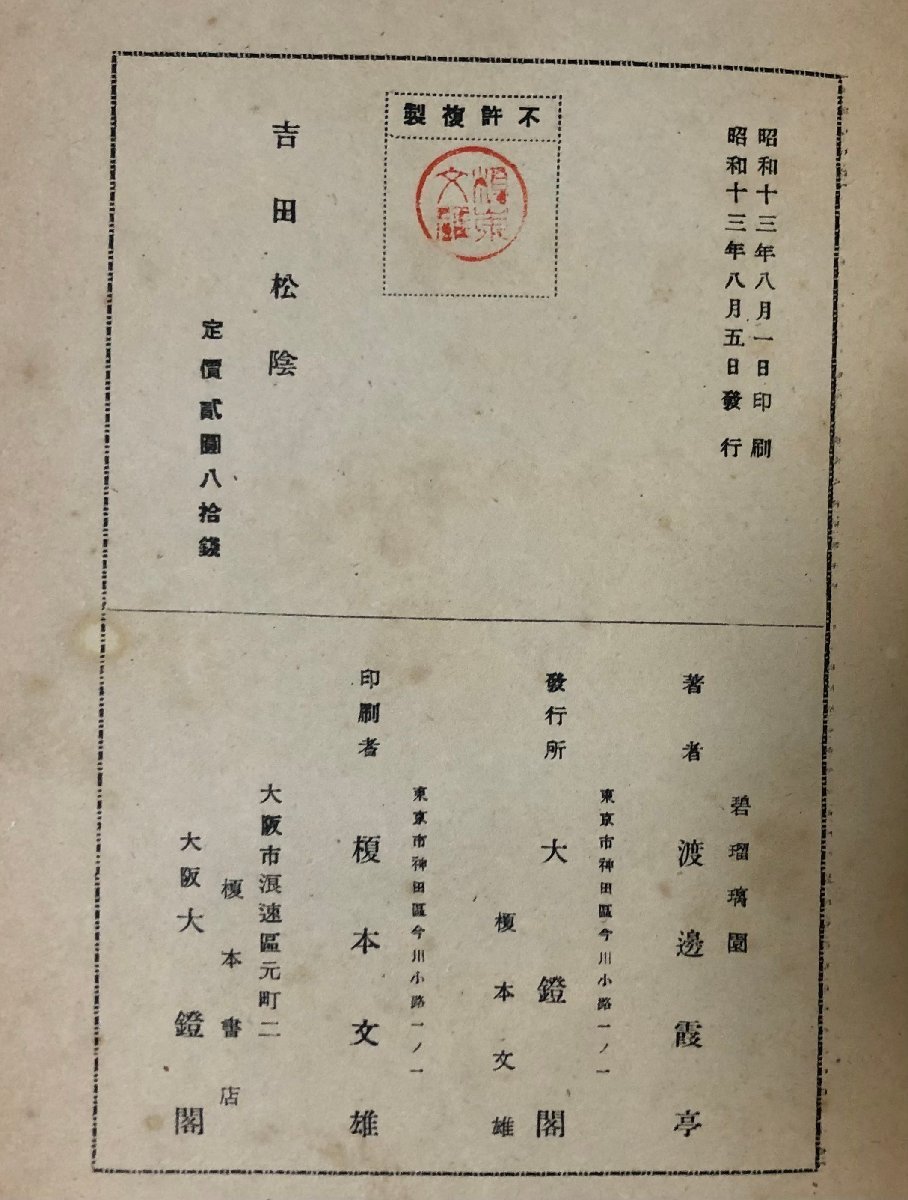 昭和十三年八月一日印刷
昭和十三年八月五日發行
不許複製
榎本文雄
吉田松陰
定價貳圓八拾錢
碧瑠璃園
著者 渡邊霞亭
東京市神田區今川小路一ノ一
發行所 大鐙閣
榎本文雄
東京市神田區今川小路一ノ一
印刷者 榎本文雄
大阪市浪速區元町二
榎本書店
大阪大鐙閣